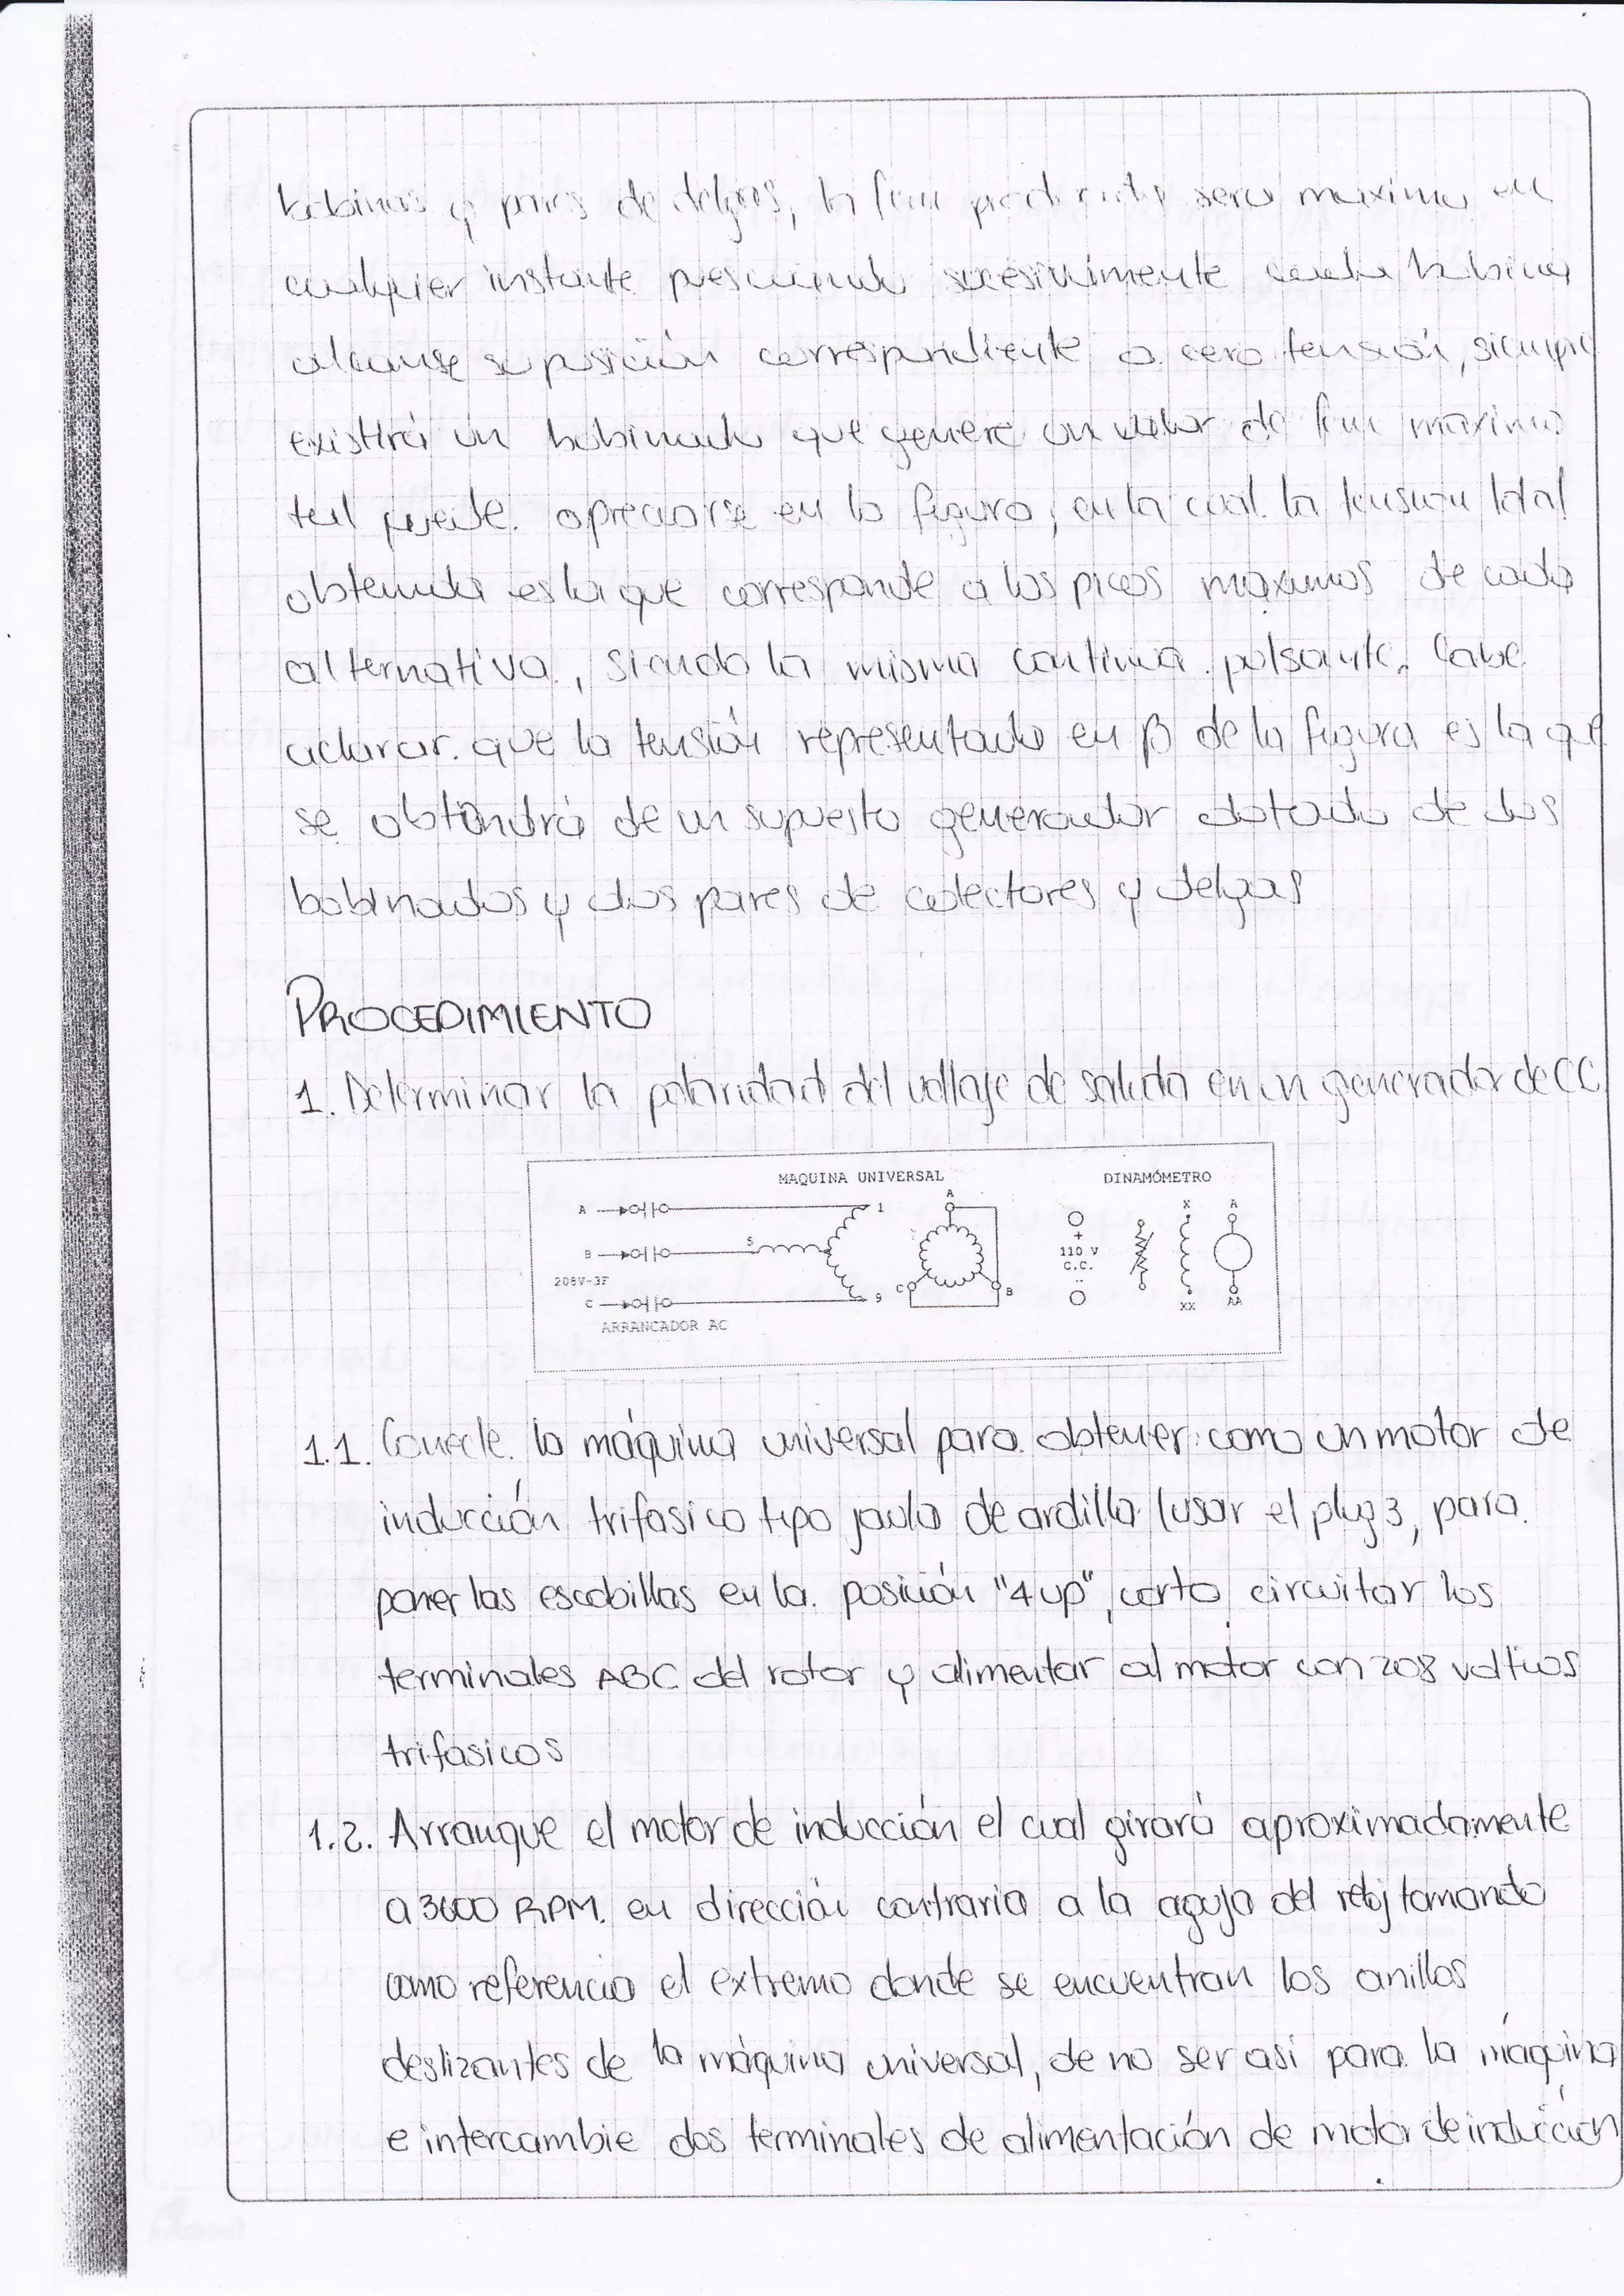 bobinas y pares de delgas, la fem producida sera maxima en
cualquier instante pues cuando sucesivamente cada bobina
alcanse su posición correspondiente a cero tensión, siempre
existirá un bobinado que genere un valor de fem maximo
tal puede apreciarse en la figura, en la cual la tension total
obtenida es la que corresponde a los picos maximos de cada
alternativa, siendo la misma continua pulsante. Cabe
aclarar que la tensión representada en B de la figura es la que
se obtendrá de un supuesto generador dotado de dos
bobinados y dos pares de colectores y delgas
PROCEDIMIENTO
1. Determinar la polaridad del voltaje de salida en un generador de CC.
MAQUINA UNIVERSAL DINAMÓMETRO
A 1 A X A
B 5 + 110 V C.C. -
208V-3F C B
C 9 XX AA
ARRANCADOR AC
1.1. Conecte la máquina universal para obtener como un motor de
inducción trifasico tipo jaula de ardilla (usar el plug 3, para
poner las escobillas en la posición "4 up", corto circuitar los
terminales ABC del rotor y alimentar al motor con 208 voltios
trifásicos
1.2. Arranque el motor de inducción el cual girará aproximadamente
a 3600 RPM. en dirección contraria a la aguja del reloj tomando
como referencia el extremo donde se encuentran los anillos
deslizantes de la máquina universal, de no ser asi para la máquina
e intercambie dos terminales de alimentación de motor de inducción